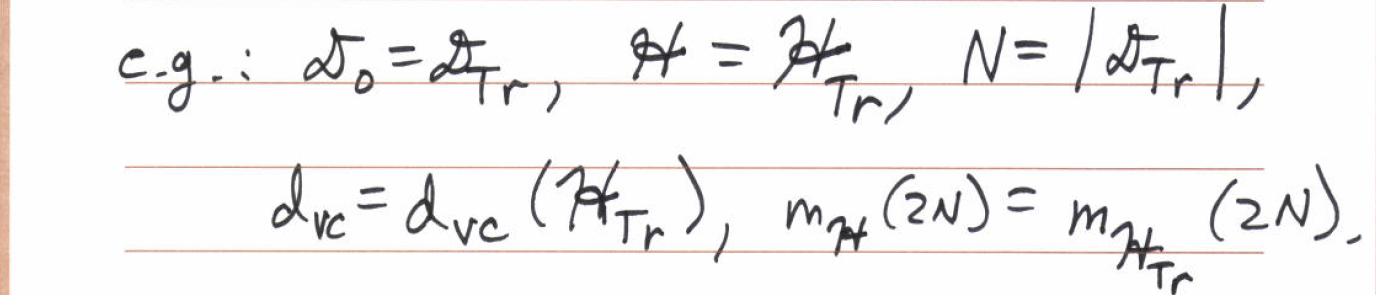 e.g.: 𝒟₀ = 𝒟_Tr, ℋ = ℋ_Tr, N = |𝒟_Tr|,
d_vc = d_vc(ℋ_Tr), m_ℋ(2N) = m_ℋ_Tr(2N).